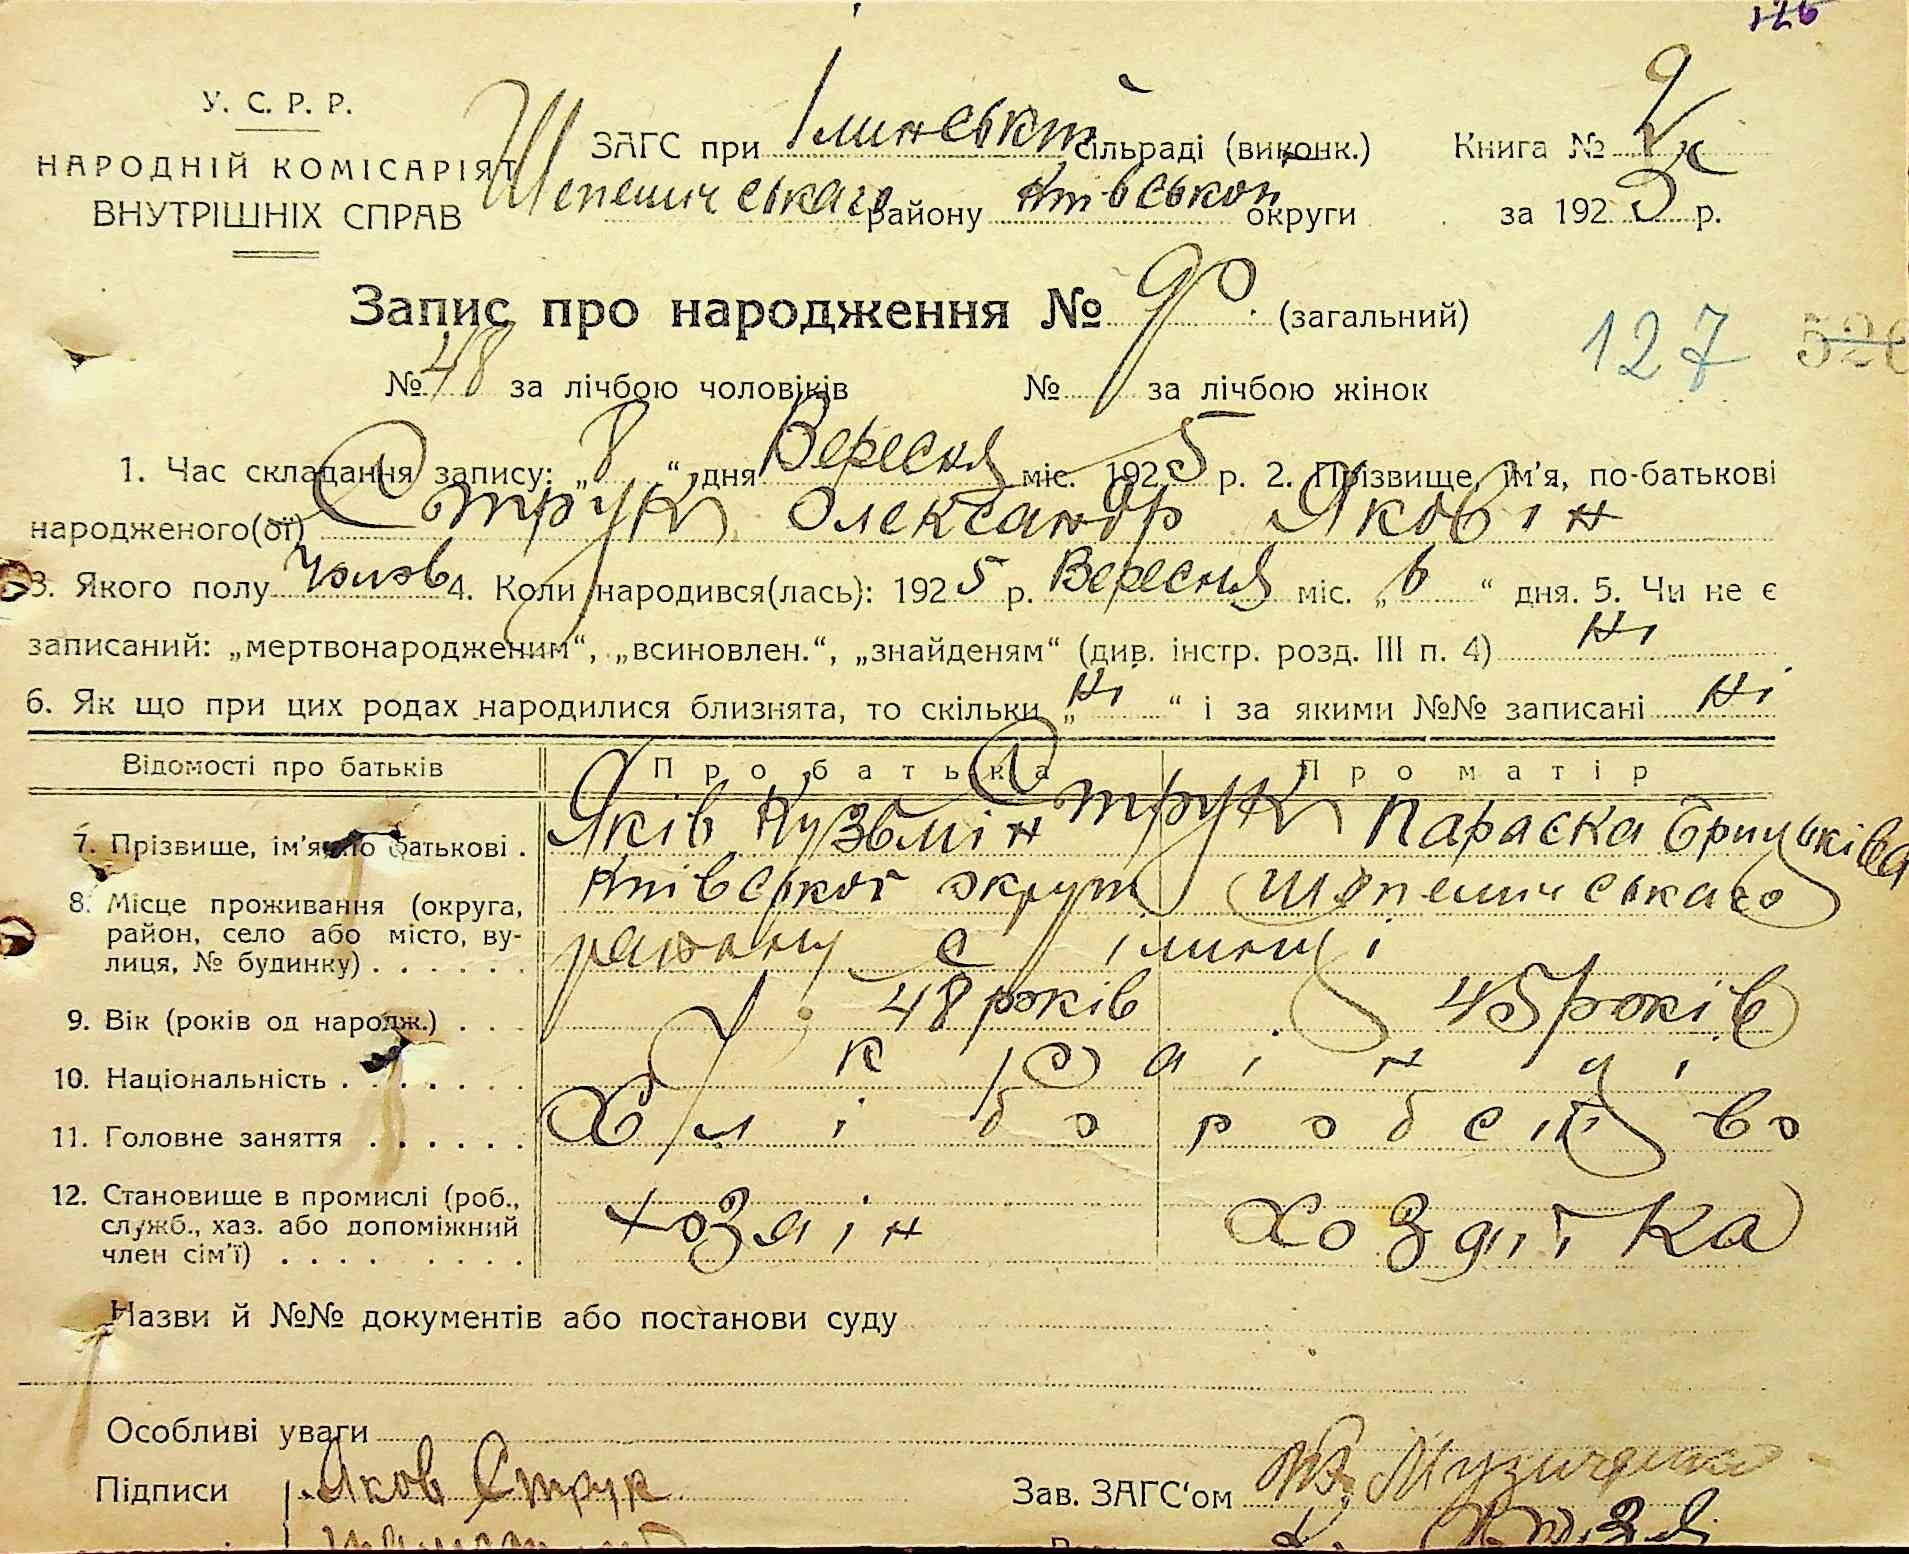 126
У. С. Р. Р.
НАРОДНІЙ КОМІСАРІЯТ
ВНУТРІШНІХ СПРАВ
ЗАГС при Ілинській сільраді (виконк.) Книга № 2
Шепеличського району Київської округи за 1925 р.
Запис про народження № 90. (загальний)
127 526
№ 48 за лічбою чоловіків № за лічбою жінок
1. Час складання запису: „8“ дня Вересня міс. 1925 р. 2. Прізвище, ім'я, по-батькові
народженого(ої) Струк Олександр Яковін
3. Якого полу Чолов 4. Коли народився(лась): 1925 р. Вересня міс. „6“ дня. 5. Чи не є
записаний: „мертвонародженим“, „всиновлен.“, „знайденям“ (див. інстр. розд. III п. 4) Ні
6. Як що при цих родах народилися близнята, то скільки „Ні“ і за якими №№ записані Ні
Відомості про батьків Про батька Про матір
7. Прізвище, ім'я по батькові . Яків Кузьмін Струк Параска Грицьківа
8. Місце проживання (округа, Київської округи Шепеличського
район, село або місто, ву- району с Ілинці
лиця, № будинку) . . . . . .
9. Вік (років од народж.) . . . 48 років 45 років
10. Національність . . . . . . . Українці
11. Головне заняття . . . . . . Хліборобство
12. Становище в промислі (роб.,
служб., хаз. або допоміжний хозяін хозяйка
член сім'ї) . . . . . . . . .
Назви й №№ документів або постанови суду
Особливі уваги
Підписи Яков Струк Зав. ЗАГС'ом Музиченко